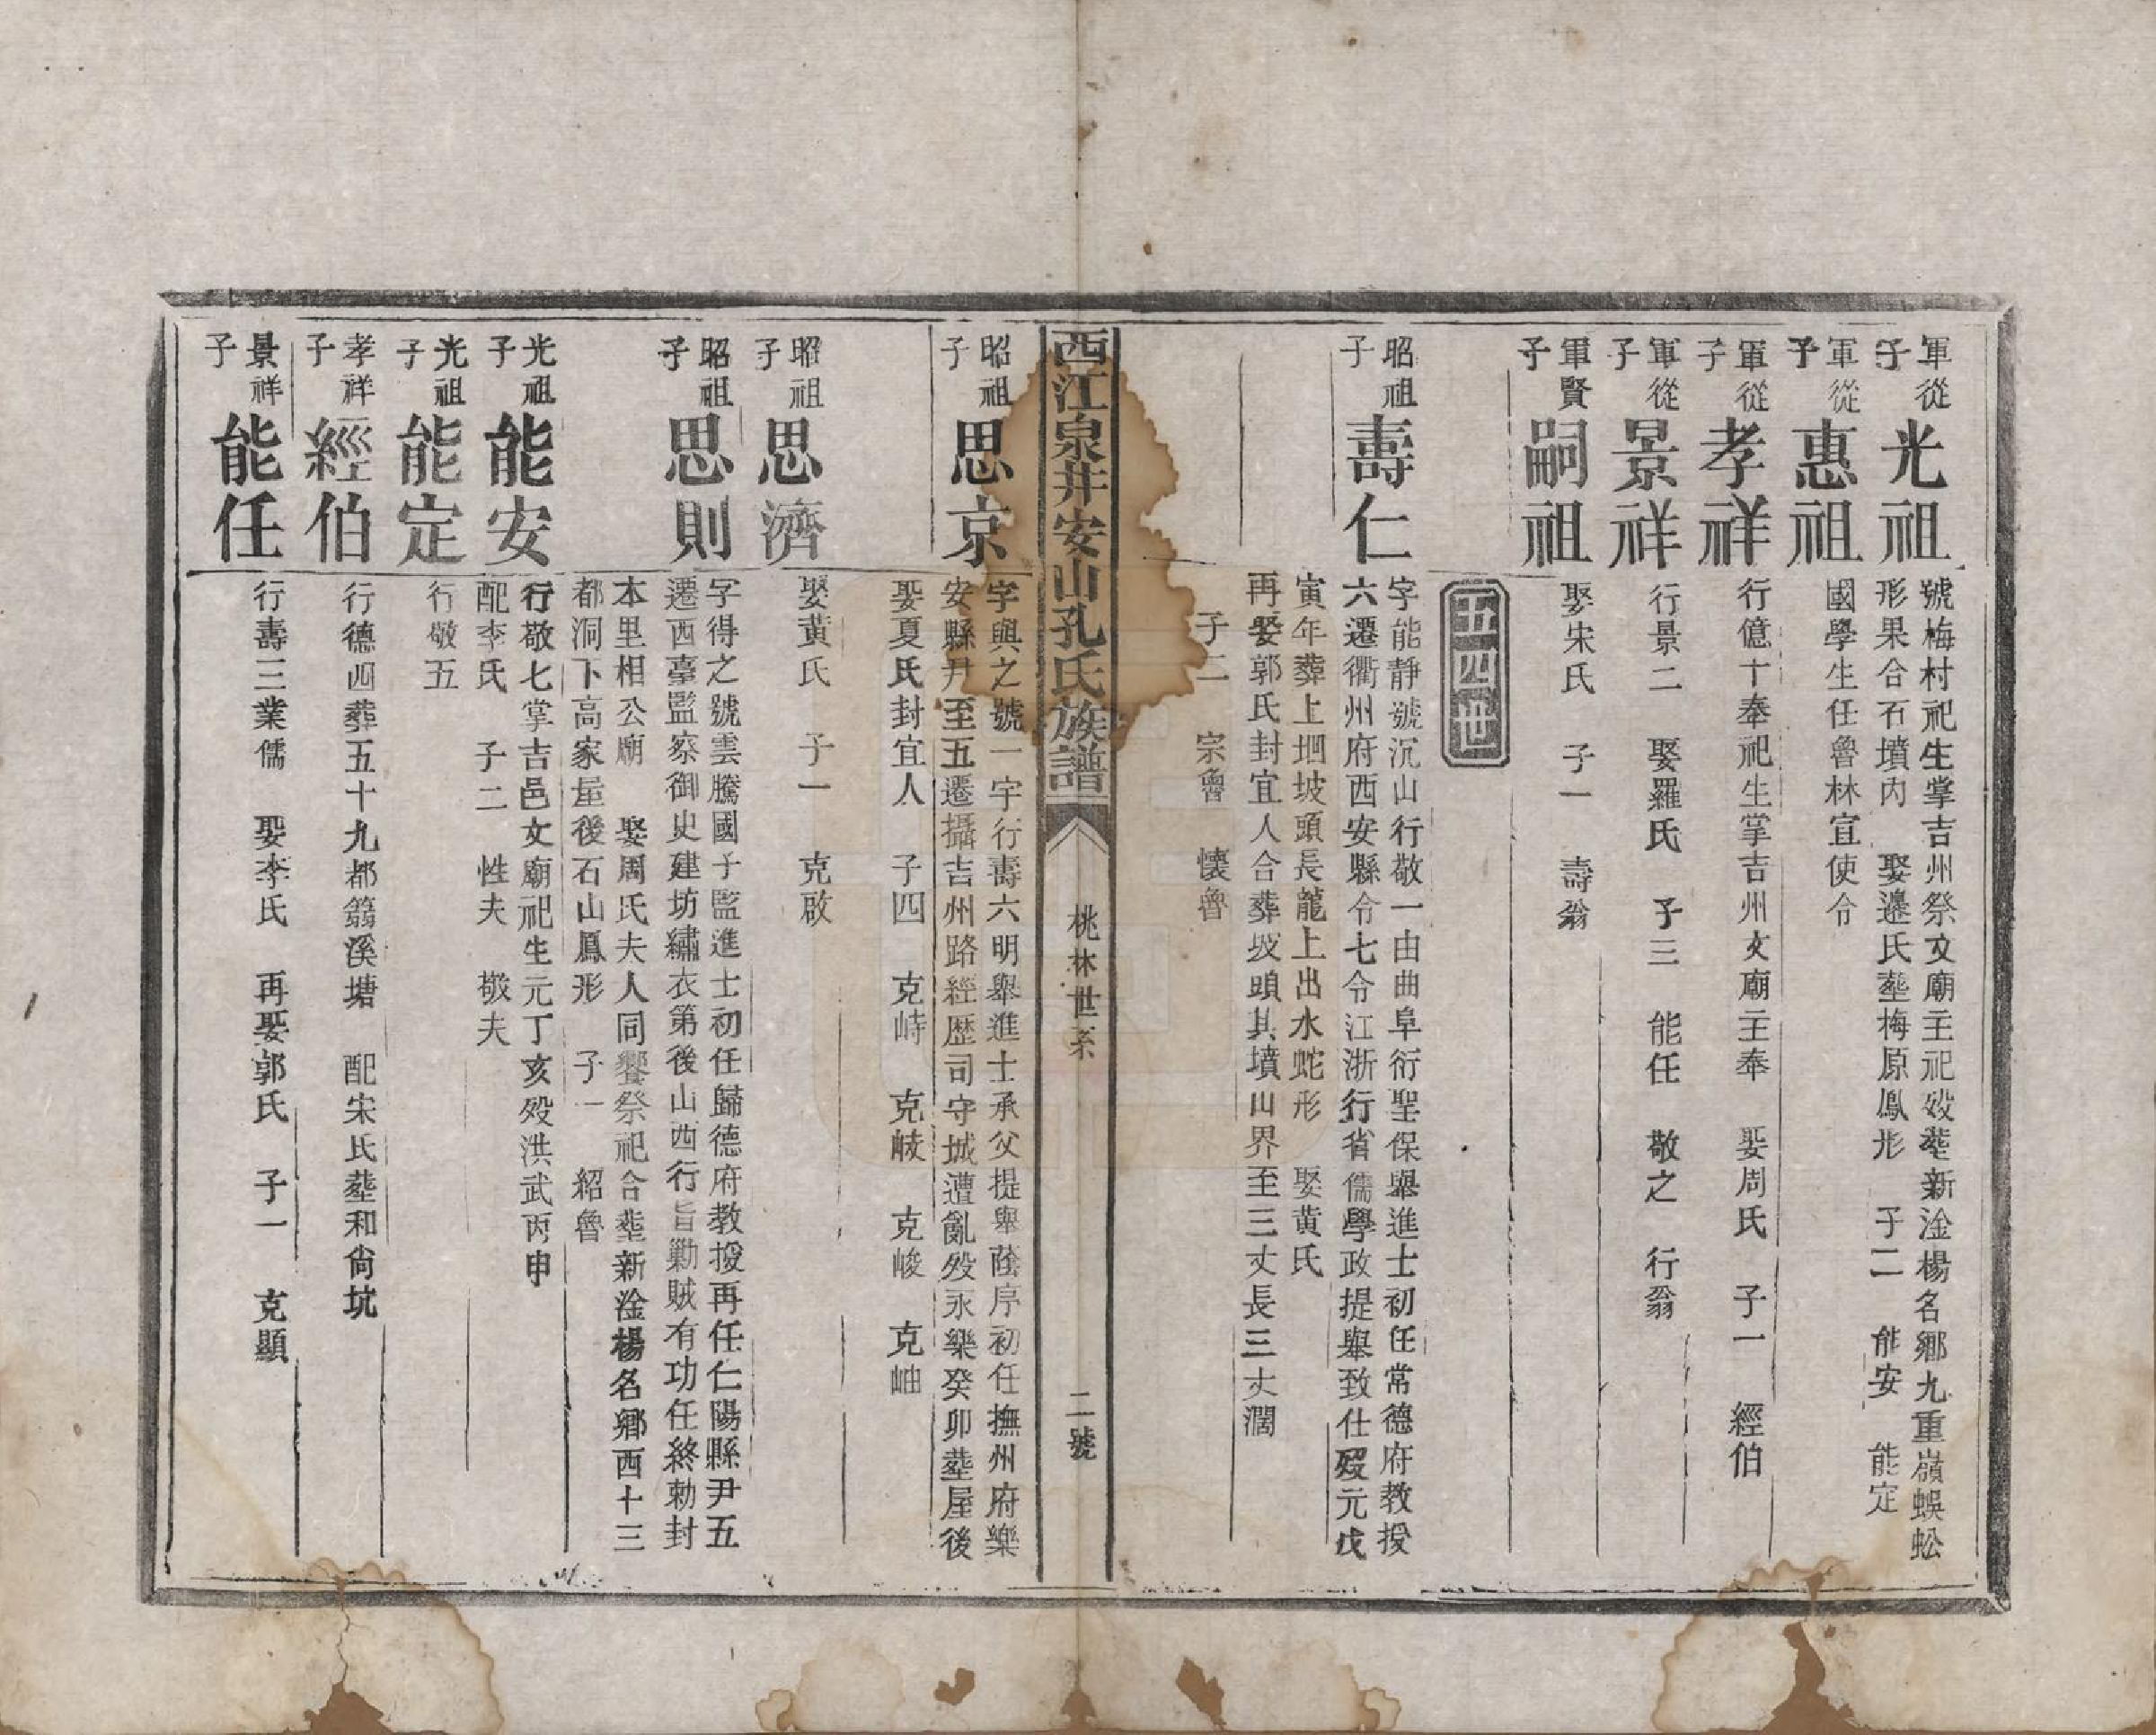 軍從子 光祖
號梅村祀生掌吉州祭文廟主祀歿塟新淦楊名鄉九重嶺蜈蚣
形果合石墳內 娶邊氏塟梅原鳳形 子二 能安 能定
軍從子 惠祖
國學生任魯林宜使令
軍從子 孝祥
行億十奉祀生掌吉州文廟主奉 娶周氏 子一 經伯
軍從子 景祥
行景二 娶羅氏 子三 能任 敬之 行翁
軍賢子 嗣祖
娶宋氏 子一 壽翁
五四世
昭祖子 壽仁
字能靜號沉山行敬一由曲阜衍聖保舉進士初任常德府教授
六遷衢州府西安縣令七令江浙行省儒學政提舉致仕歿元戊
寅年葬上坥坡頭長龍上出水蛇形 娶黃氏
再娶郭氏封宜人合葬坡頭其墳山界至三丈長三丈濶
子二 宗魯 懷魯
西江泉井安山孔氏族譜
桃林世系
二號
昭祖子 思京
字與之號一宇行壽六明舉進士承父提舉蔭序初任撫州府樂
安縣尹至五遷攝吉州路經歷司守城遭亂歿永樂癸卯塟屋後
娶夏氏封宜人 子四 克峙 克崚 克峻 克岫
昭祖子 思濟
娶黃氏 子一 克啟
昭祖子 思則
字得之號雲騰國子監進士初任歸德府教授再任仁陽縣尹五
遷西臺監察御史建坊繡衣第後山西行旨勦賊有功任終勅封
本里相公廟 娶周氏夫人同饗祭祀合塟新淦楊名鄉西十三
都洞下高家屋後石山鳳形 子一 紹魯
光祖子 能安
行敬七掌吉邑文廟祀生元丁亥歿洪武丙申
配李氏 子二 性夫 敬夫
光祖子 能定
行敬五
孝祥子 經伯
行德四葬五十九都蒻溪塘 配宋氏塟和尙坑
景祥子 能任
行壽三業儒 娶李氏 再娶郭氏 子一 克顯